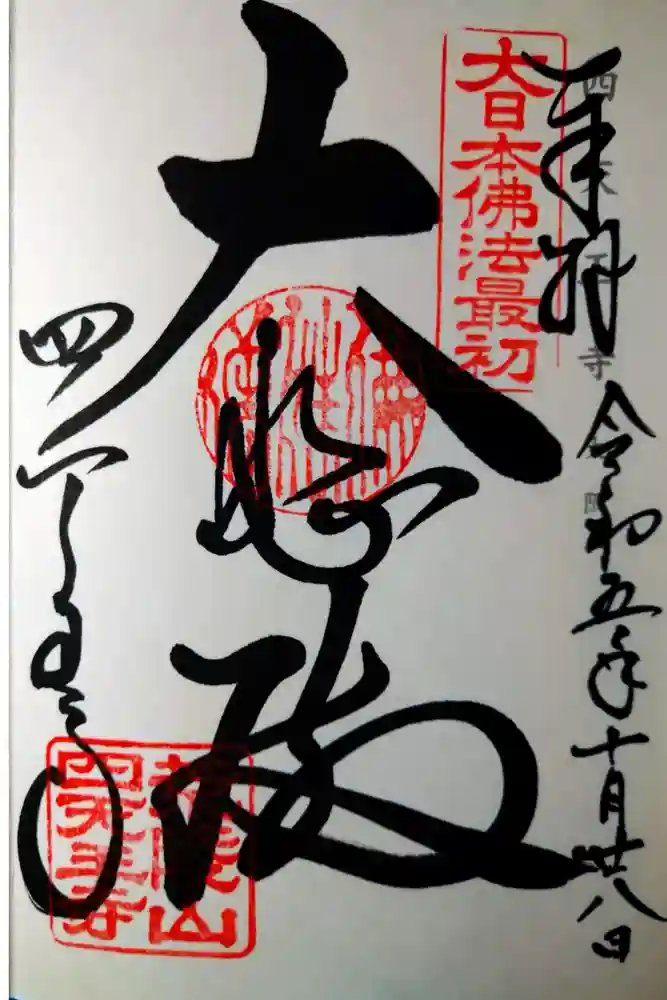 奉拝 令和五年十月廿八日
四天王寺
大日本佛法最初
大悲殿
四天王寺
荒陵山
四天王寺